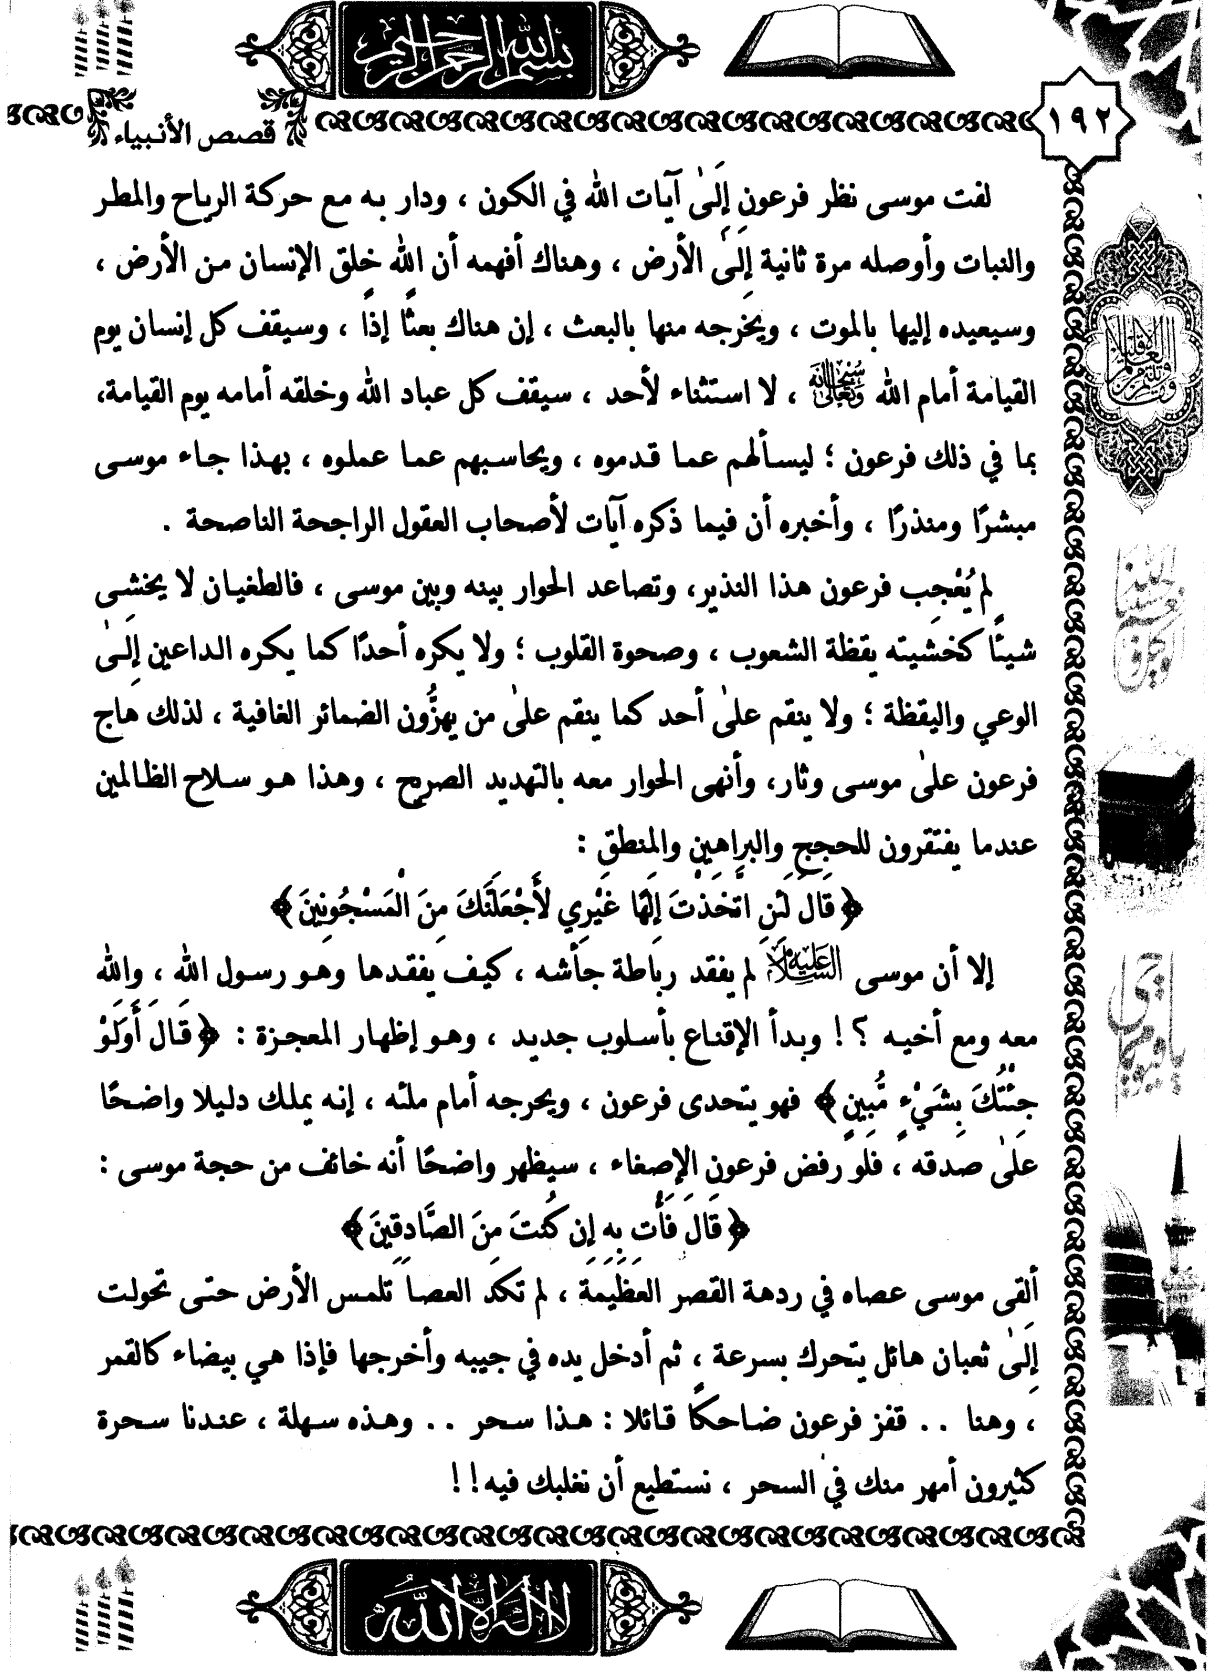 بسم الله الرحمن الرحيم
١٩٢
قصص الأنبياء
لفت موسى نظر فرعون إِلَىٰ آيات الله في الكون ، ودار به مع حركة الرياح والمطر
والنبات وأوصله مرة ثانية إِلَى الأرض ، وهناك أفهمه أن الله خلق الإنسان من الأرض ،
وسيعيده إليها بالموت ، ويخرجه منها بالبعث ، إن هناك بعثًا إذًا ، وسيقف كل إنسان يوم
القيامة أمام الله سبحانه وتعالى ، لا استثناء لأحد ، سيقف كل عباد الله وخلقه أمامه يوم القيامة،
بما في ذلك فرعون ؛ ليسألهم عما قدموه ، ويحاسبهم عما عملوه ، بهذا جاء موسى
مبشرًا ومنذرًا ، وأخبره أن فيما ذكره آيات لأصحاب العقول الراجحة الناصحة .
لم يُعْجِب فرعون هذا النذير، وتصاعد الحوار بينه وبين موسى ، فالطغيان لا يخشى
شيئًا كخشيته يقظة الشعوب ، وصحوة القلوب ؛ ولا يكره أحدًا كما يكره الداعين إِلَىٰ
الوعي واليقظة ؛ ولا ينقم علىٰ أحد كما ينقم علىٰ من يهزُّون الضمائر الغافية ، لذلك هاج
فرعون علىٰ موسى وثار، وأنهى الحوار معه بالتهديد الصريح ، وهذا هو سلاح الظالمين
عندما يفتقرون للحجج والبراهين والمنطق :
﴿ قَالَ لَئِنِ اتَّخَذْتَ إِلَهًا غَيْرِي لَأَجْعَلَنَّكَ مِنَ الْمَسْجُونِينَ ﴾
إلا أن موسى عليه السلام لم يفقد رباطة جأشه ، كيف يفقدها وهو رسول الله ، والله
معه ومع أخيه ؟! وبدأ الإقناع بأسلوب جديد ، وهو إظهار المعجزة : ﴿ قَالَ أَوَلَوْ
جِئْتُكَ بِشَيْءٍ مُّبِينٍ ﴾ فهو يتحدى فرعون ، ويحرجه أمام ملئه ، إنه يملك دليلا واضحًا
علىٰ صدقه ، فلو رفض فرعون الإصغاء ، سيظهر واضحًا أنه خائف من حجة موسى :
﴿ قَالَ فَأْتِ بِهِ إِن كُنتَ مِنَ الصَّادِقِينَ ﴾
ألقى موسى عصاه في ردهة القصر العظيمة ، لم تكد العصا تلمس الأرض حتى تحولت
إِلَىٰ ثعبان هائل يتحرك بسرعة ، ثم أدخل يده في جيبه وأخرجها فإذا هي بيضاء كالقمر
، وهنا .. قفز فرعون ضاحكًا قائلا : هذا سحر .. وهذه سهلة ، عندنا سحرة
كثيرون أمهر منك في السحر ، نستطيع أن نغلبك فيه !!
حسبنا الله ونعم الوكيل
يا حي يا قيوم
لا إله إلا الله